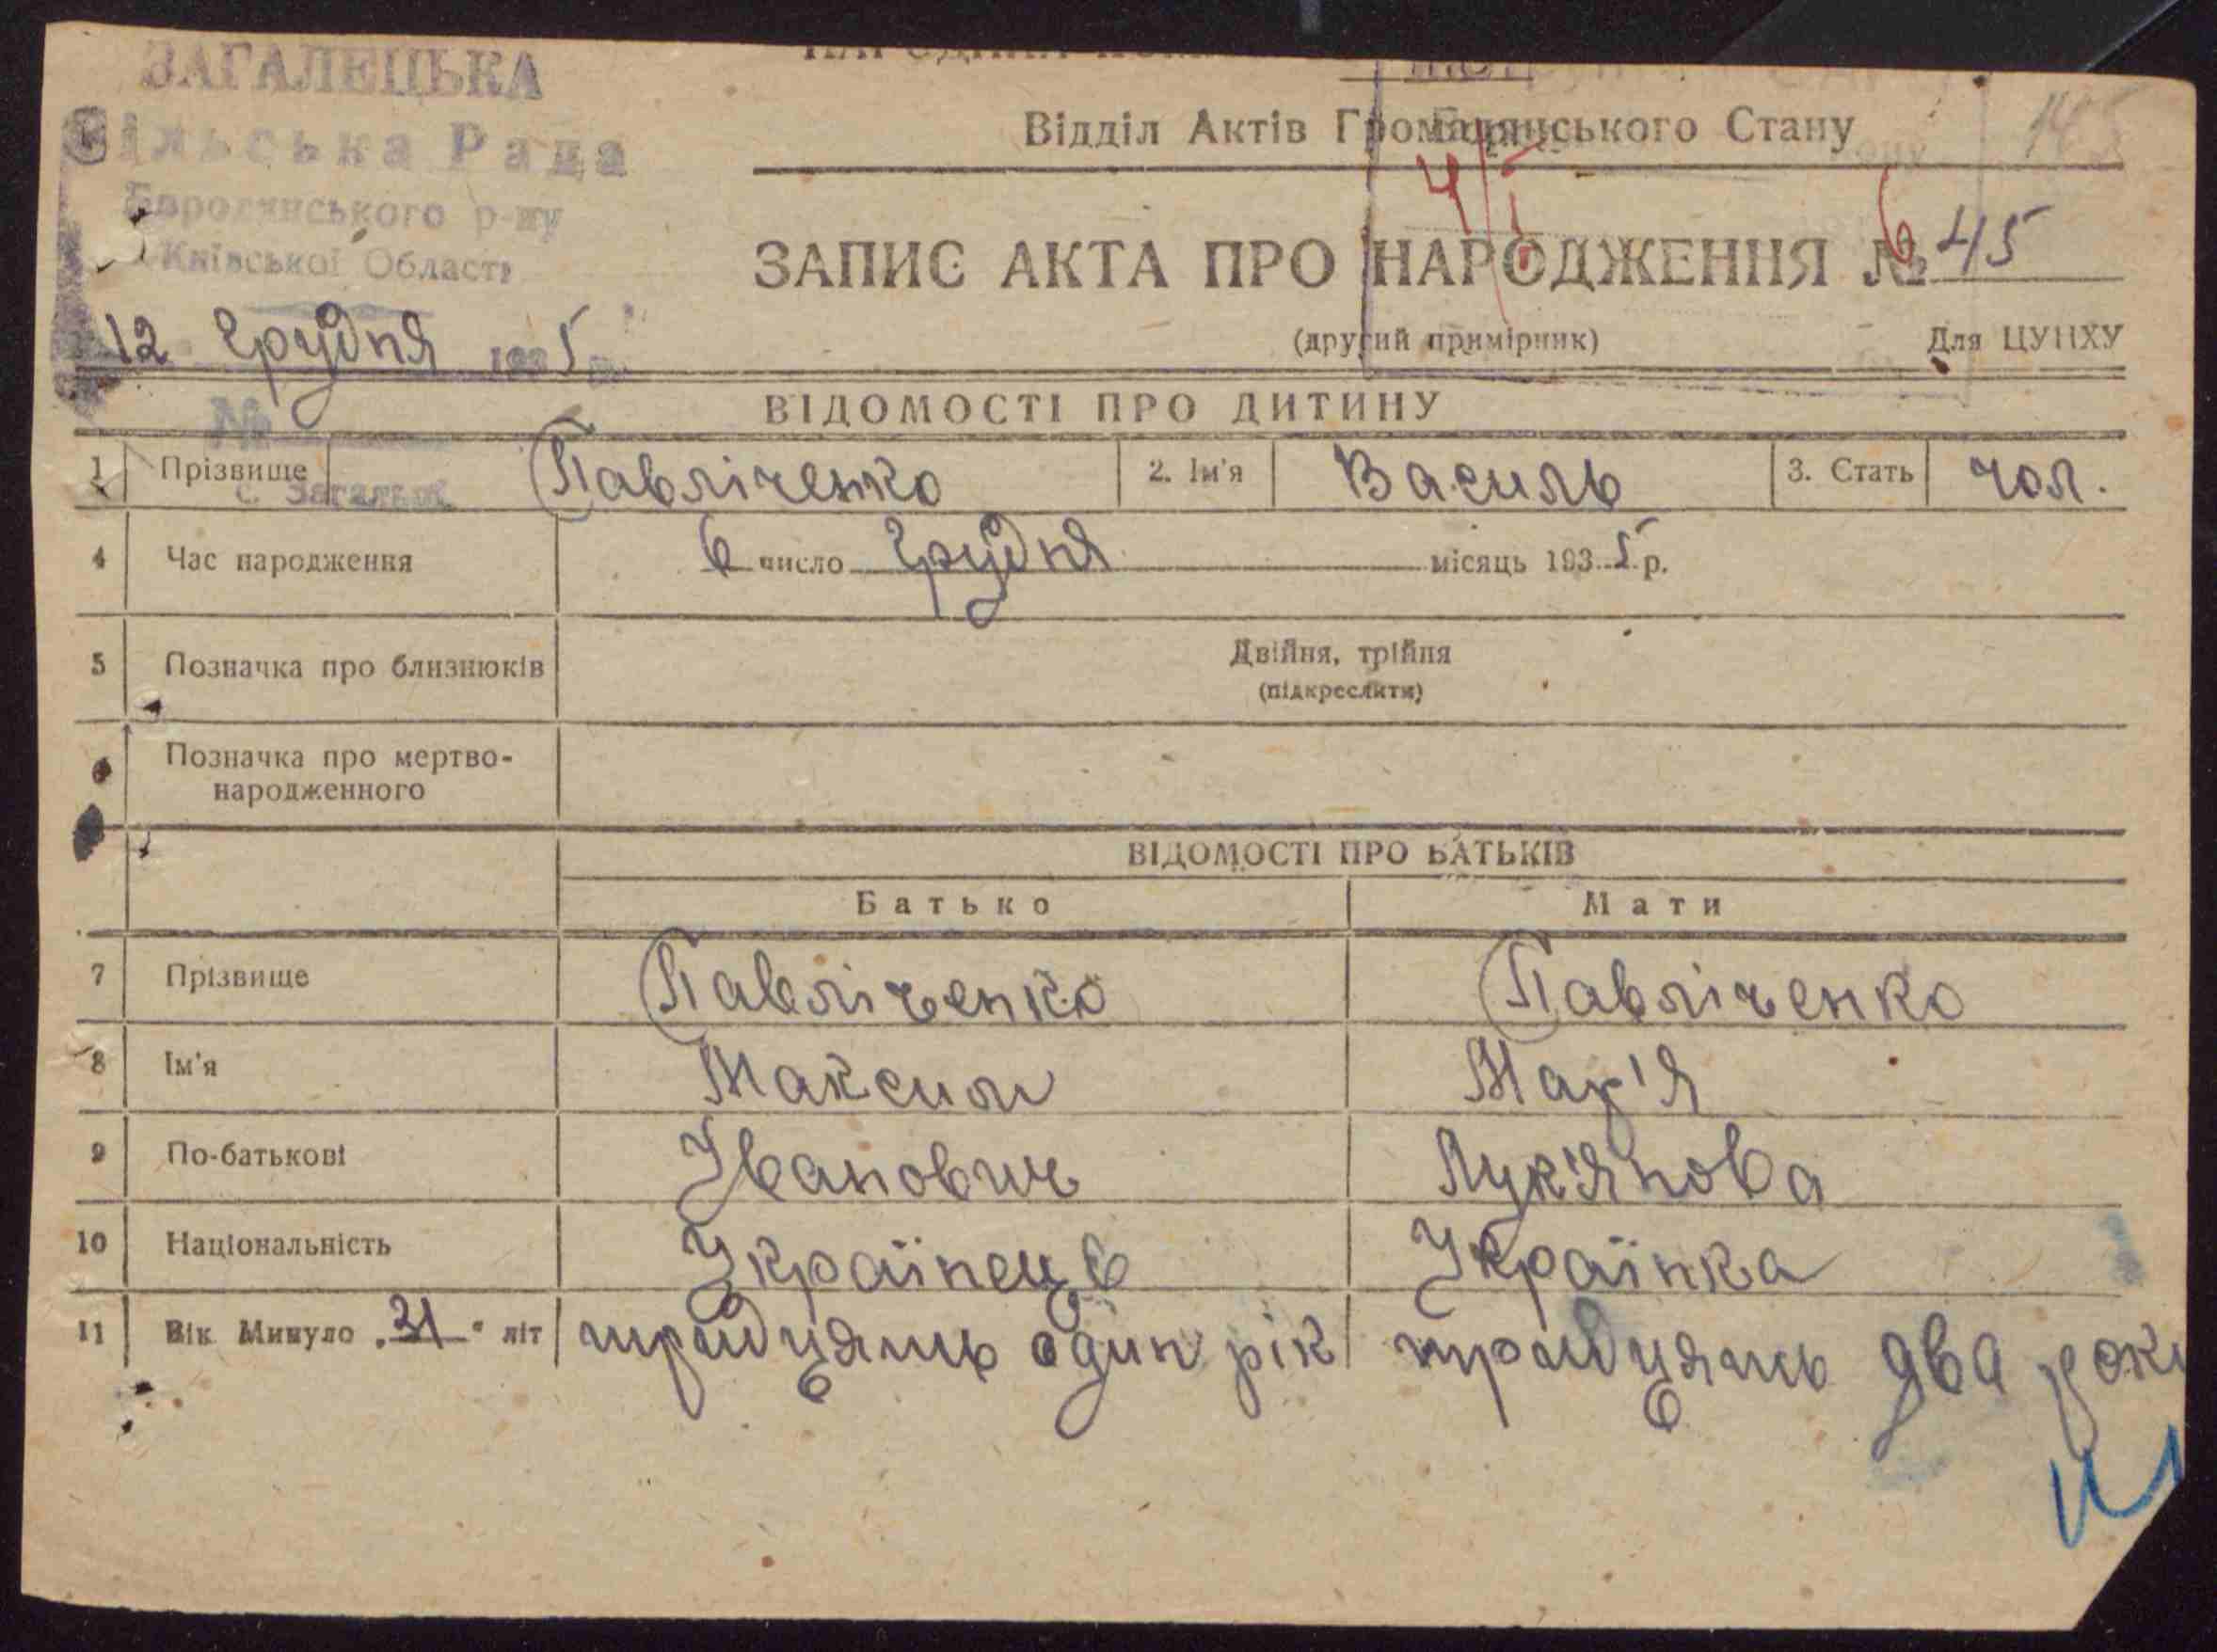 ЗАГАЛЕЦЬКА
Сільська Рада
Бородянського р-ну
Київської Області
12 грудня 1935 р.
№
с. Загальці
Відділ Актів Громадянського Стану
145
4/I
6
ЗАПИС АКТА ПРО НАРОДЖЕННЯ № 45
(другий примірник) Для ЦУНХУ
ВІДОМОСТІ ПРО ДИТИНУ
1 Прізвище Павліченко 2. Ім'я Василь 3. Стать чол.
4 Час народження 6 число грудня місяць 1935 р.
5 Позначка про близнюків Двійня, трійня
(підкреслити)
6 Позначка про мертво-
народженного
ВІДОМОСТІ ПРО БАТЬКІВ
Батько Мати
7 Прізвище Павліченко Павліченко
8 Ім'я Максим Мар'я
9 По-батькові Іванович Лук'янова
10 Національність Українець Українка
11 Вік Минуло „31" літ тридцять один рік тридцять два роки